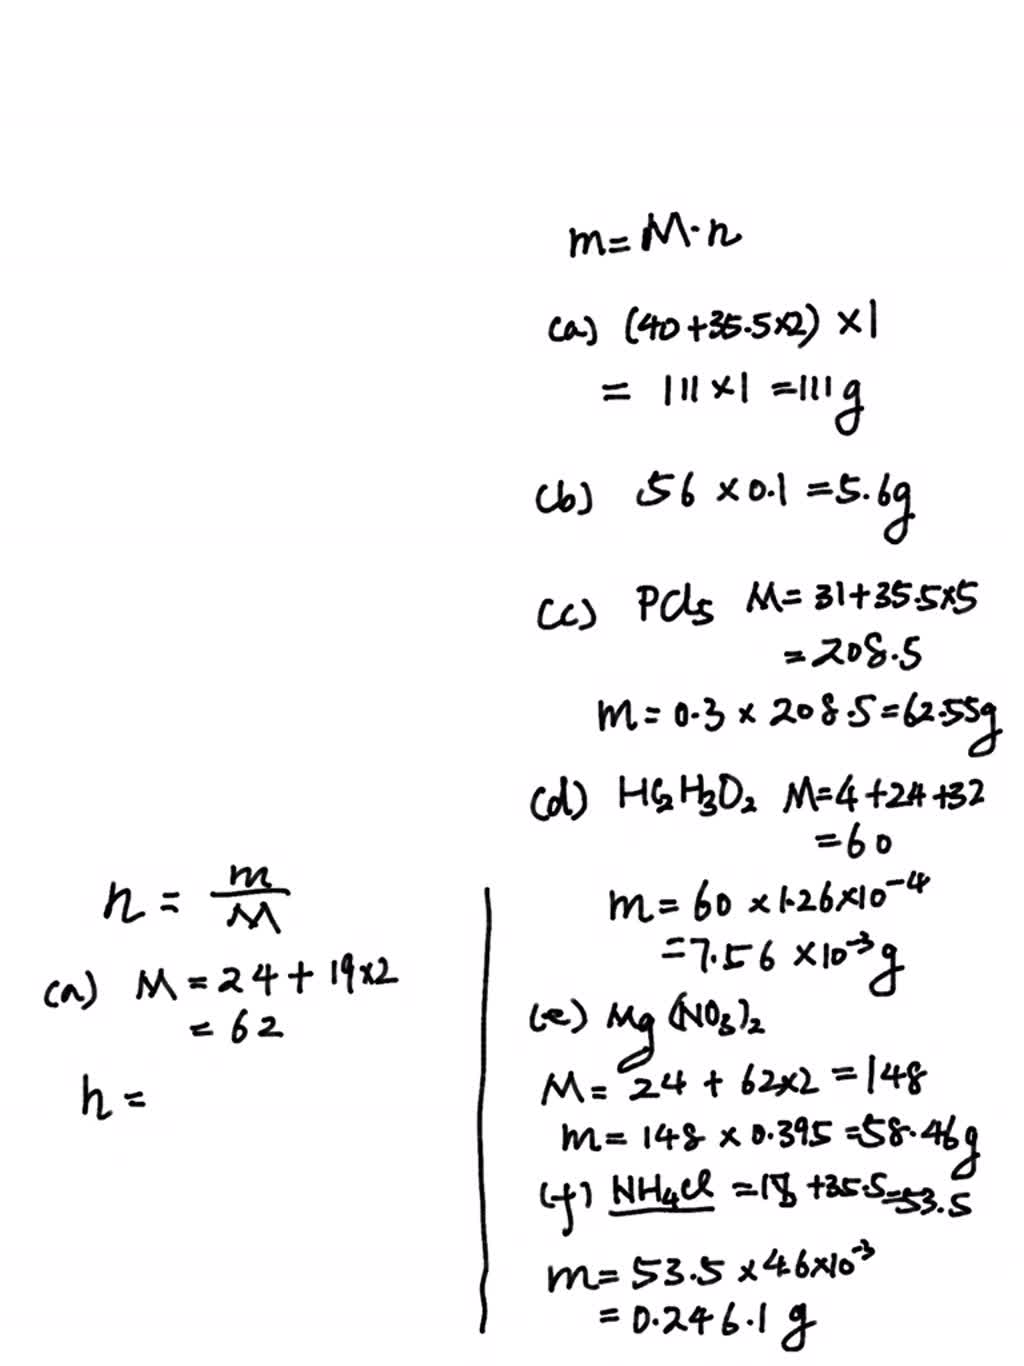 m = M·n
(a) (40+35.5×2) ×1
= 111 ×1 =111g
(b) 56 ×0.1 =5.6g
(c) PCl5 M= 31+35.5×5
= 208.5
m = 0.3 × 208.5=62.55g
(d) HC2H3O2 M=4+24+32
=60
m = 60 ×1.26×10⁻⁴
=7.56 ×10⁻³g
(e) Mg(NO3)2
M= 24 + 62×2 =148
m= 148 × 0.395 =58.46g
(f) NH4Cl =18+35.5=53.5
m= 53.5 ×4.6×10⁻³
= 0.246.1 g
n = m/M
(a) M = 24+ 19×2
= 62
n =